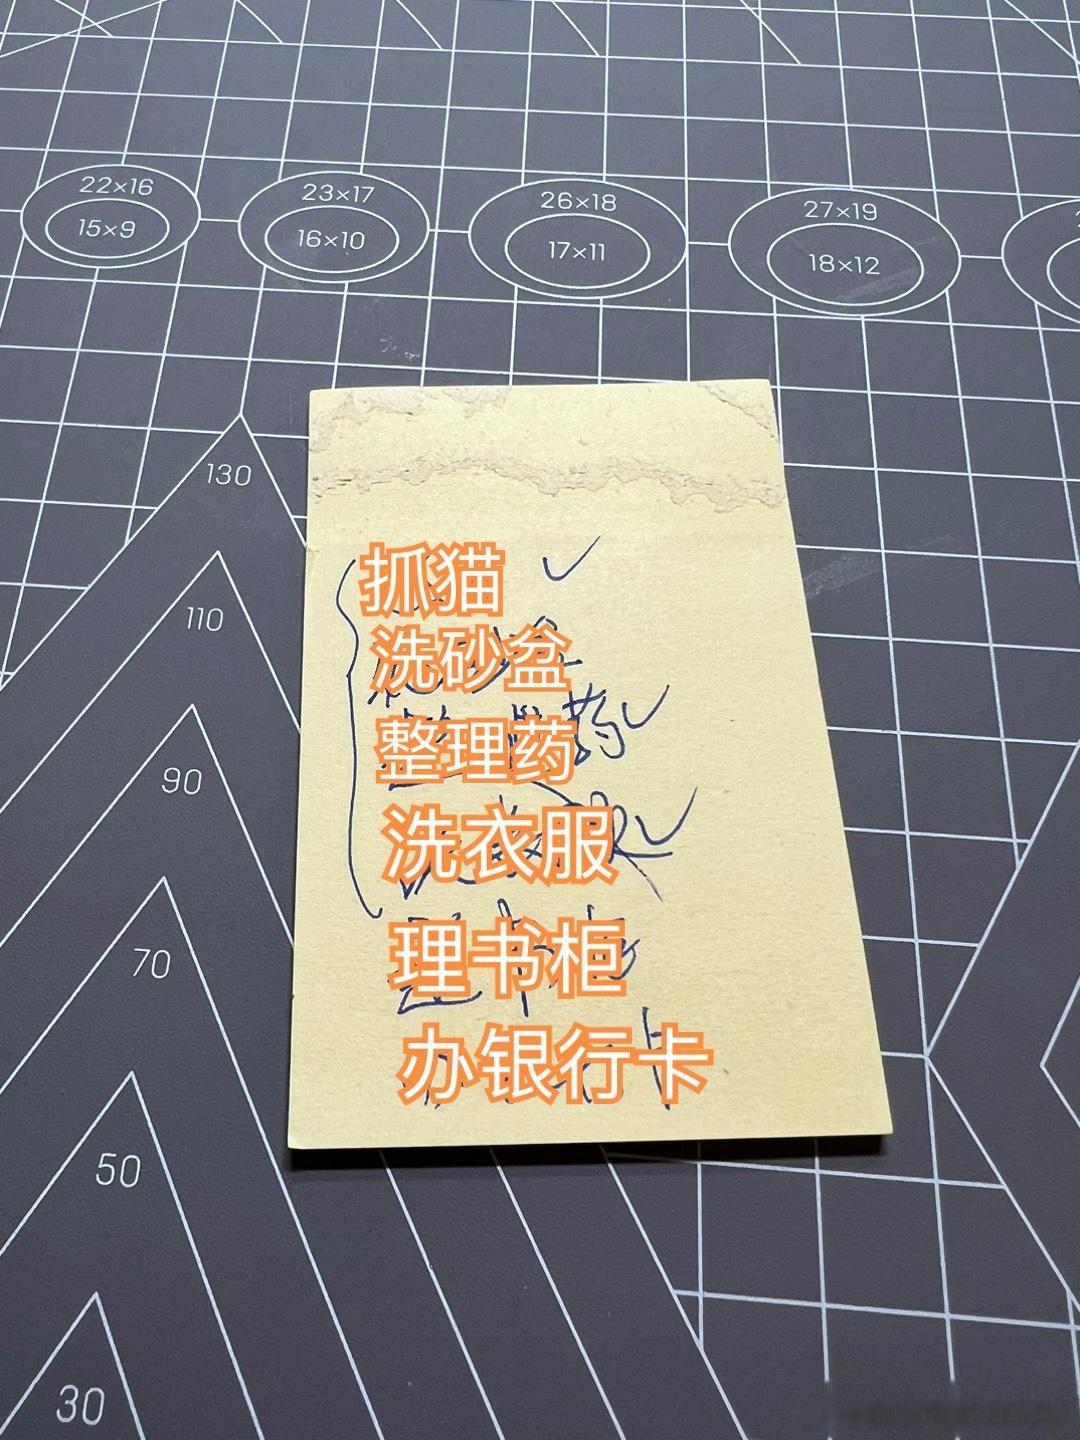 22×16
15×9
23×17
16×10
26×18
17×11
27×19
18×12
130
110
90
70
50
30
抓猫 ✓
洗砂盆
整理药 ✓
洗衣服 ✓
理书柜
办银行卡